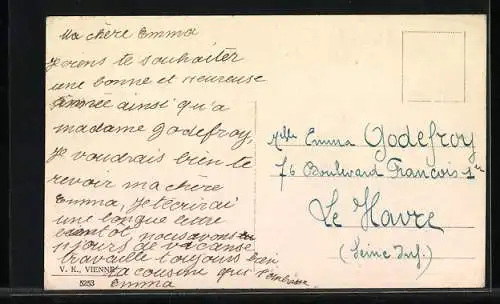 Ma chère Emma
Je viens te souhaiter
une bonne et Heureuse
année ainsi qu'a
madame Godefroy,
Je voudrais bien te
revoir ma chère
Emma, Je t'écrirai
une longue lettre
bientot, nous avons
jours de vacanse
travaille toujours bien
Ta cousine qui t'embrasse
Emma
V. K., VIENNE
5253
Mlle Emma Godefroy
76 Boulevard François 1er
Le Havre
(Seine Inf.)